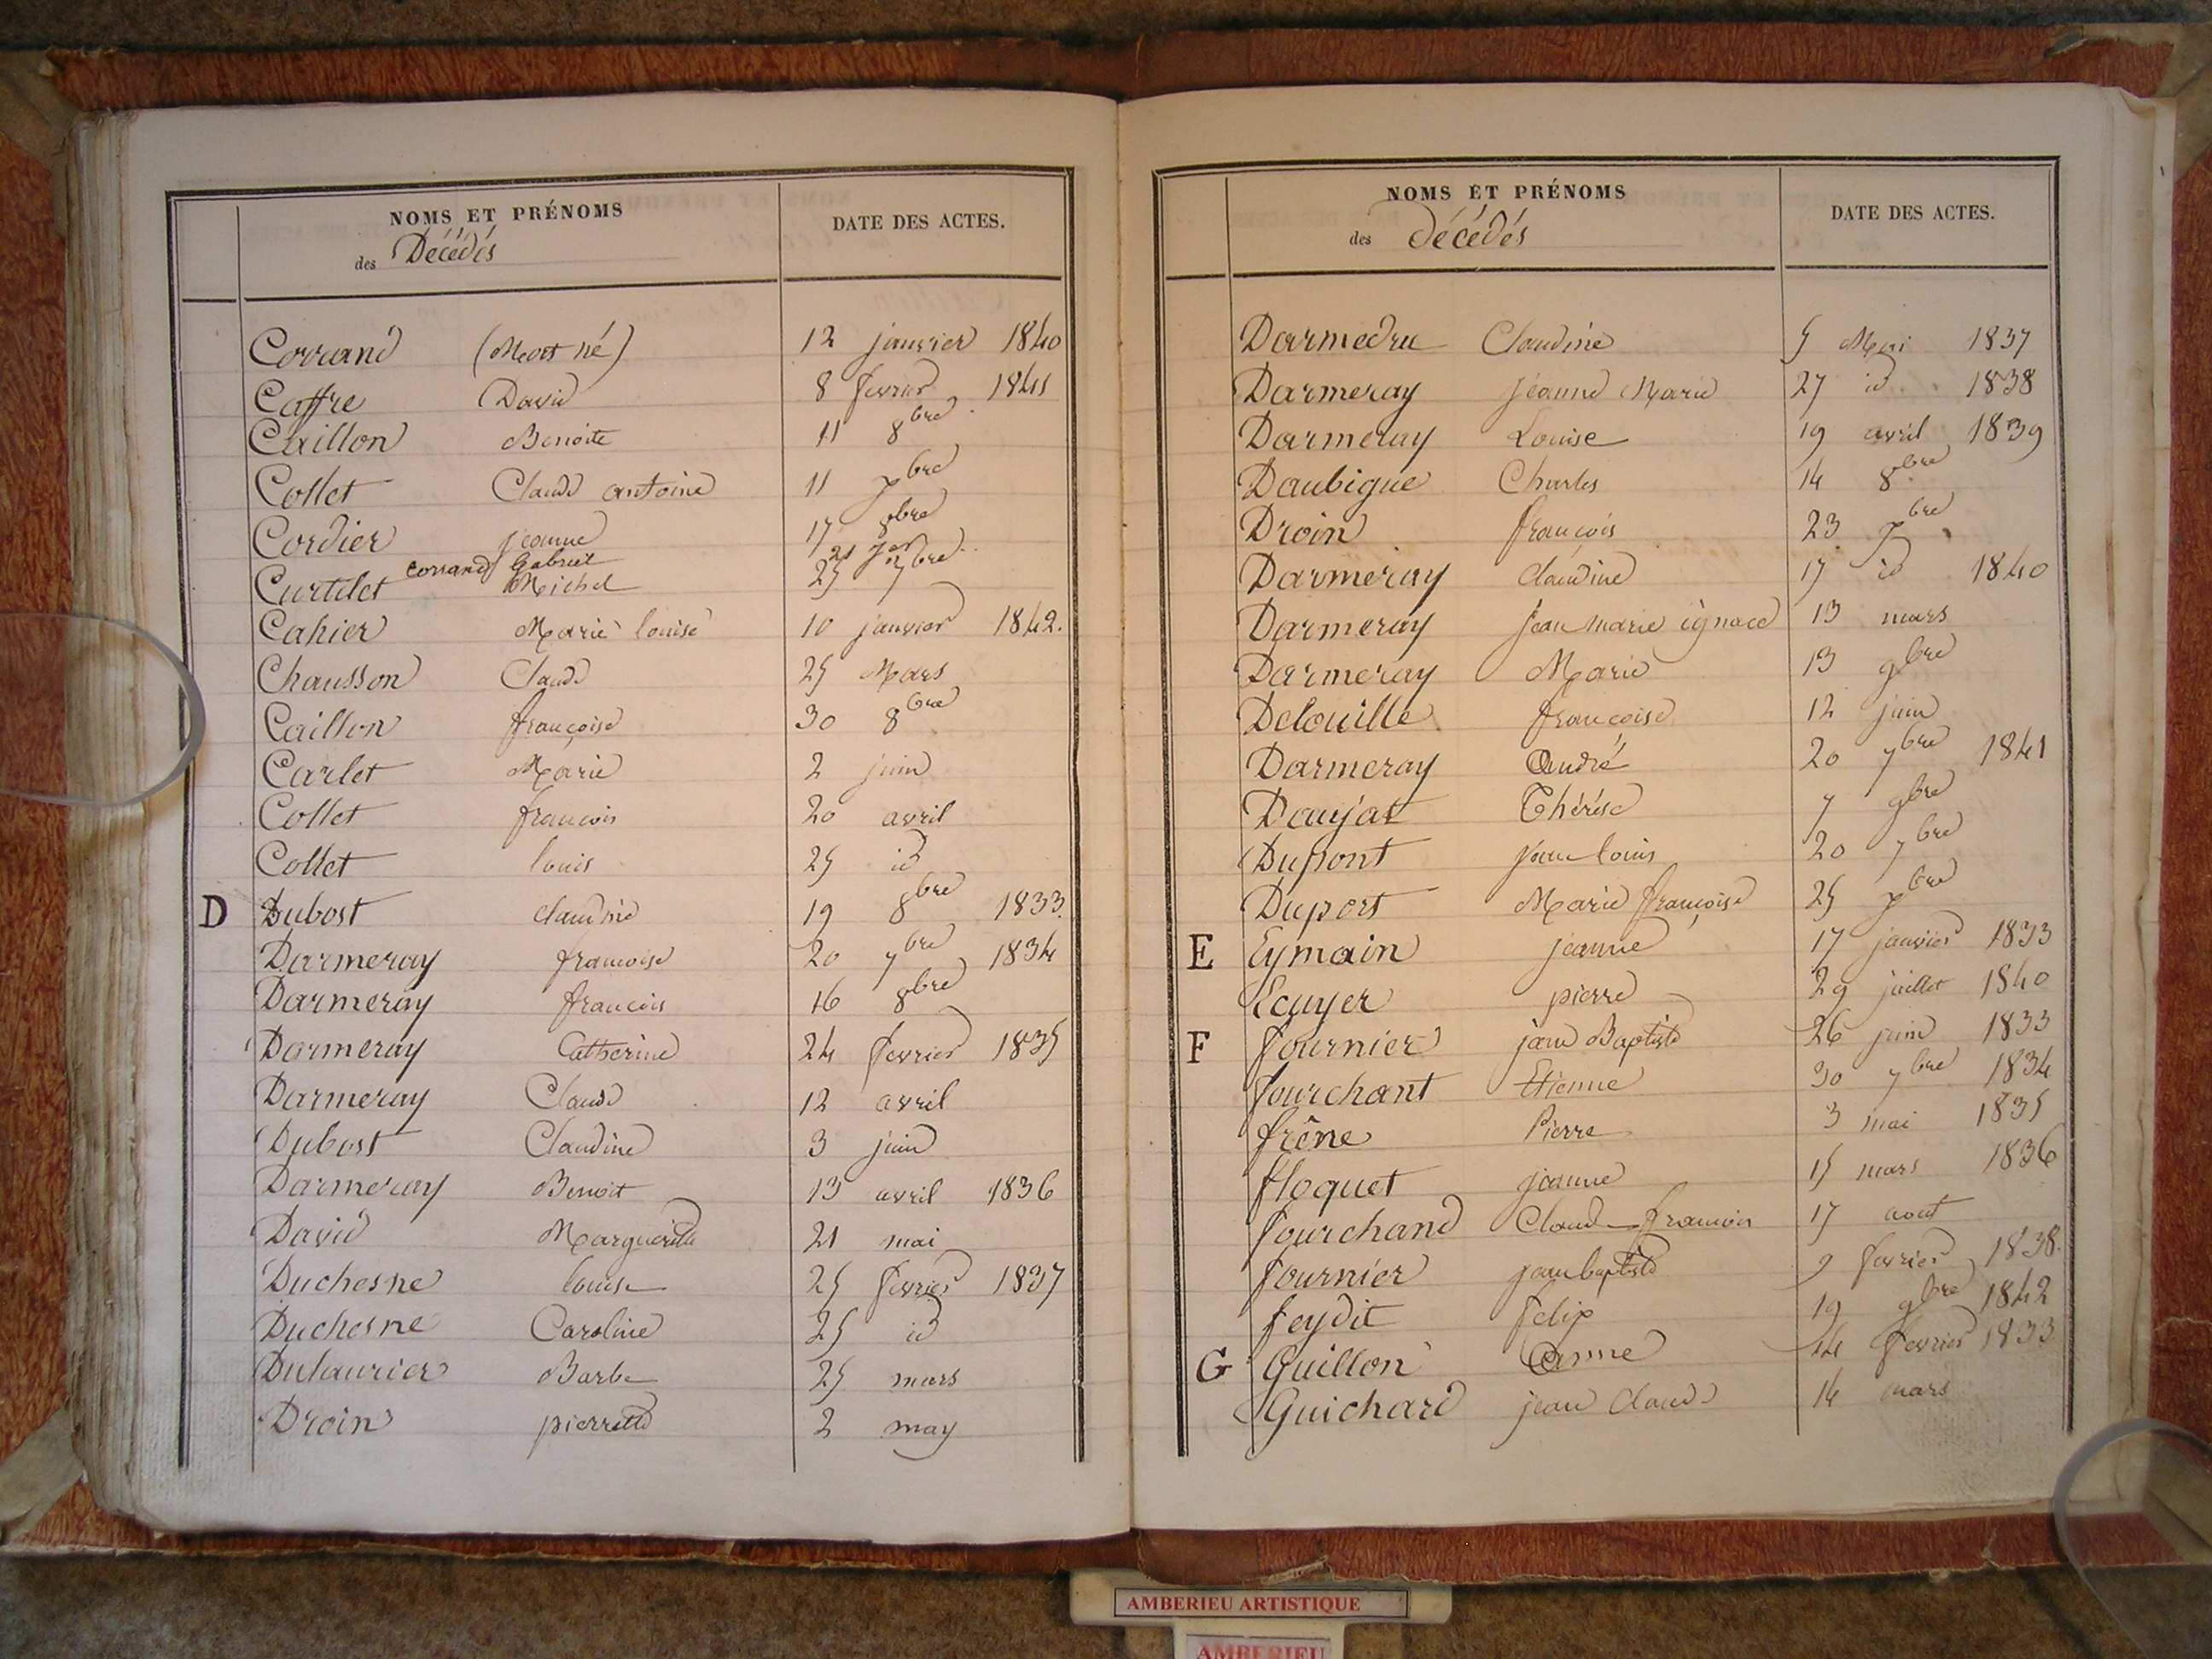 NOMS ET PRÉNOMS
des Décédés
DATE DES ACTES.
Corrand (Mort né) 12 janvier 1840
Caffre David 8 fevrier 1841
Caillon Benoite 11 8bre
Collet Claude antoine 11 xbre
Cordier jeanne 17 8bre
corrand Gabriel 21
Curtelet Michel 25 7bre
Cahier Marie louise 10 janvier 1842.
Chausson Claude 25 Mars
Caillon françoise 30 8bre
Carlet Marie 2 juin
Collet francois 20 avril
Collet louis 25 id
D Dubost claudine 19 8bre 1833
Darmeray francoise 20 7bre 1834
Darmeray francois 16 8bre
Darmeray Catherine 24 fevrier 1835
Darmeray Claude 12 avril
Dubost Claudine 3 juin
Darmeray Benoit 13 avril 1836
David Marguerite 21 mai
Duchesne louise 25 fevrier 1837
Duchesne Caroline 25 id
Dulaurier Barbe 25 mars
Droin pierrette 2 may
NOMS ET PRÉNOMS
des décédés
DATE DES ACTES.
Darmedru Claudine 5 Mai 1837
Darmeray jeanne Marie 27 id 1838
Darmeray Louise 19 avril 1839
Daubigue Charles 14 8bre
Droin françois 23 xbre
Darmeray claudine 17 id 1840
Darmeray jean marie ignace 13 mars
Darmeray Marie 13 9bre
Delouille françoise 12 juin
Darmeray André 20 7bre 1841
Daujat Thérèse 7 9bre
Dupont jean louis 20 7bre
Duport Marie françoise 25 xbre
E Eymain jeanne 17 janvier 1833
Ecuyer pierre 29 juillet 1840
F fournier jean Baptiste 26 juin 1833
fourchant Etienne 30 7bre 1834
frêne Pierre 3 mai 1835
floquet jeanne 15 mars 1836
fourchand Claude francois 17 aout
fournier jean baptiste 9 fevrier 1838.
feydit felix 19 9bre 1842
G Guillon Anne 14 fevrier 1833
Guichard jean Claude 14 mars
AMBERIEU ARTISTIQUE
AMBERIEU